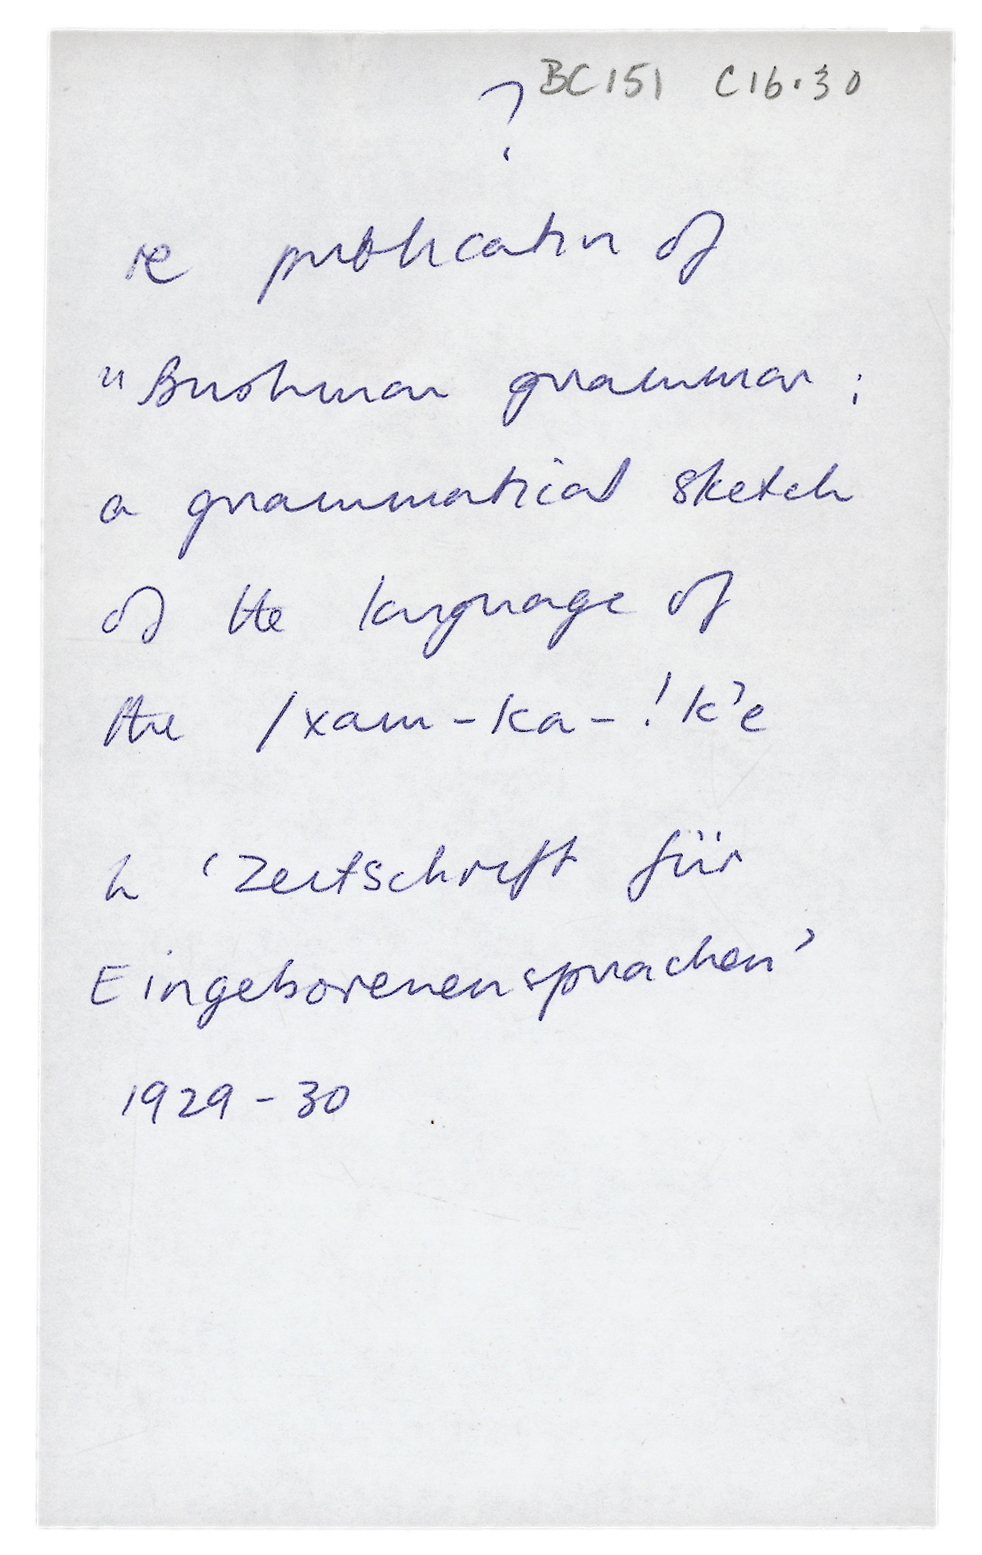 BC151 C16.30
?
re publication of
"Bushman grammar :
a grammatical sketch
of the language of
the /xam-ka-!k'e
in 'Zeitschrift für
Eingeborenensprachen'
1929-30